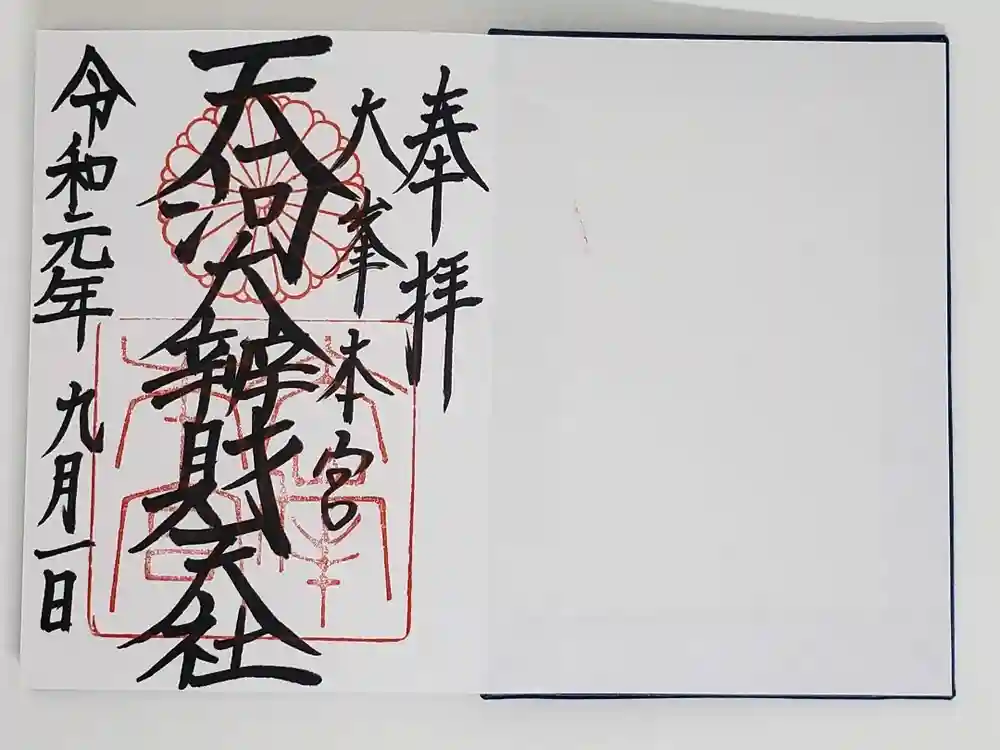 奉拝
大峯本宮
天河大辨財天社
令和元年九月一日